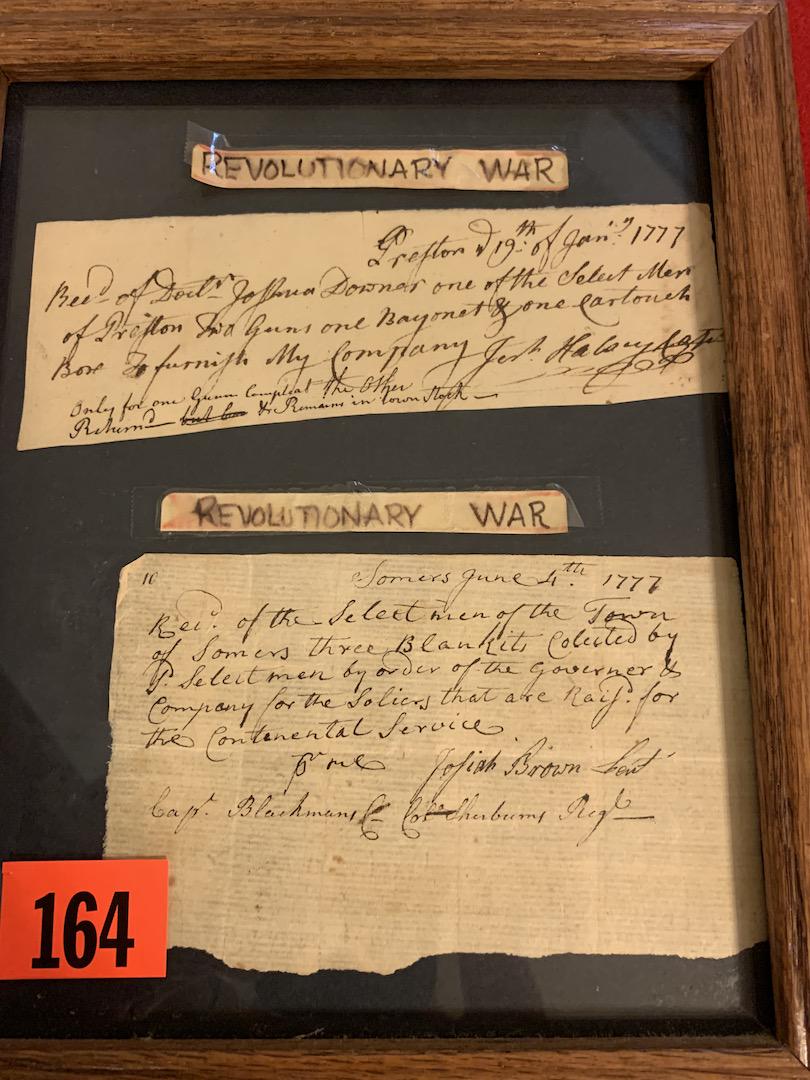 REVOLUTIONARY WAR
Preston 19th of Jany 1777
Recd of Doctr Joshua Downer one of the Select Men
of Preston Two Guns one Bayonet & one Cartouch
Box To furnish My Company Jerh Halsey Capt
Only for one Gunn Compleat the Other
Returnd & Remains in town Stock
REVOLUTIONARY WAR
10 Somers June 4th 1777
Recd. of the Select men of the Town
of Somers three Blankits Colected by
Sd Select men by order of the Governer &
Company for the Soliers that are Raisd. for
the Continental Service
pr me Josiah Brown Leut
Capt. Blackmans Co Colo Sherburns Regt
164